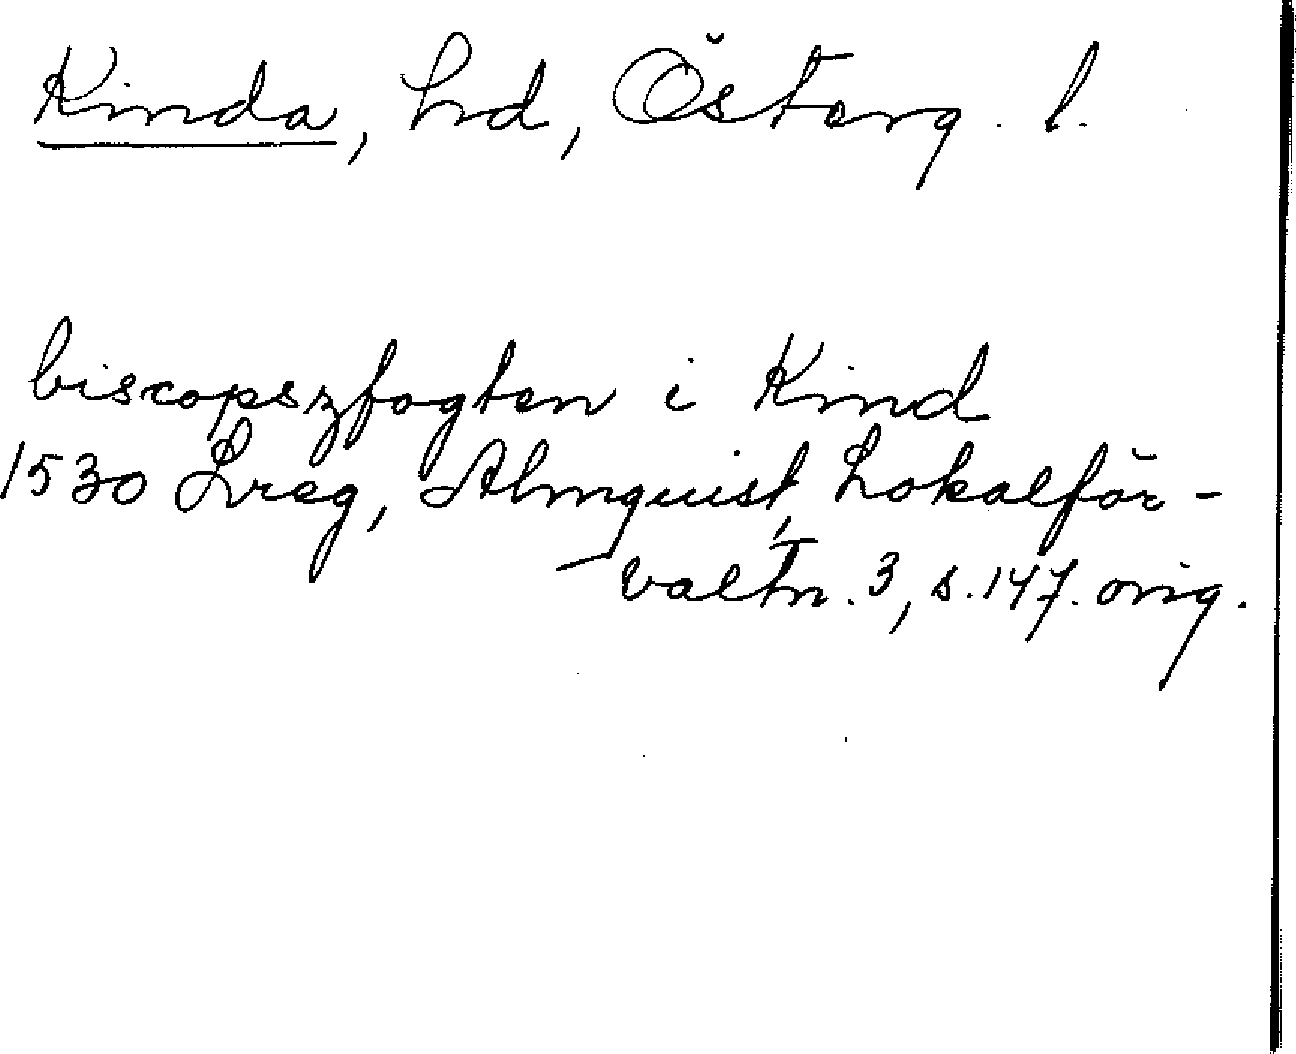 Kinda, hd, Österg. l.
biscopszfogten i Kind
1530 Lreg, Almquist, Lokalför-
valtn. 3, s. 147. orig.